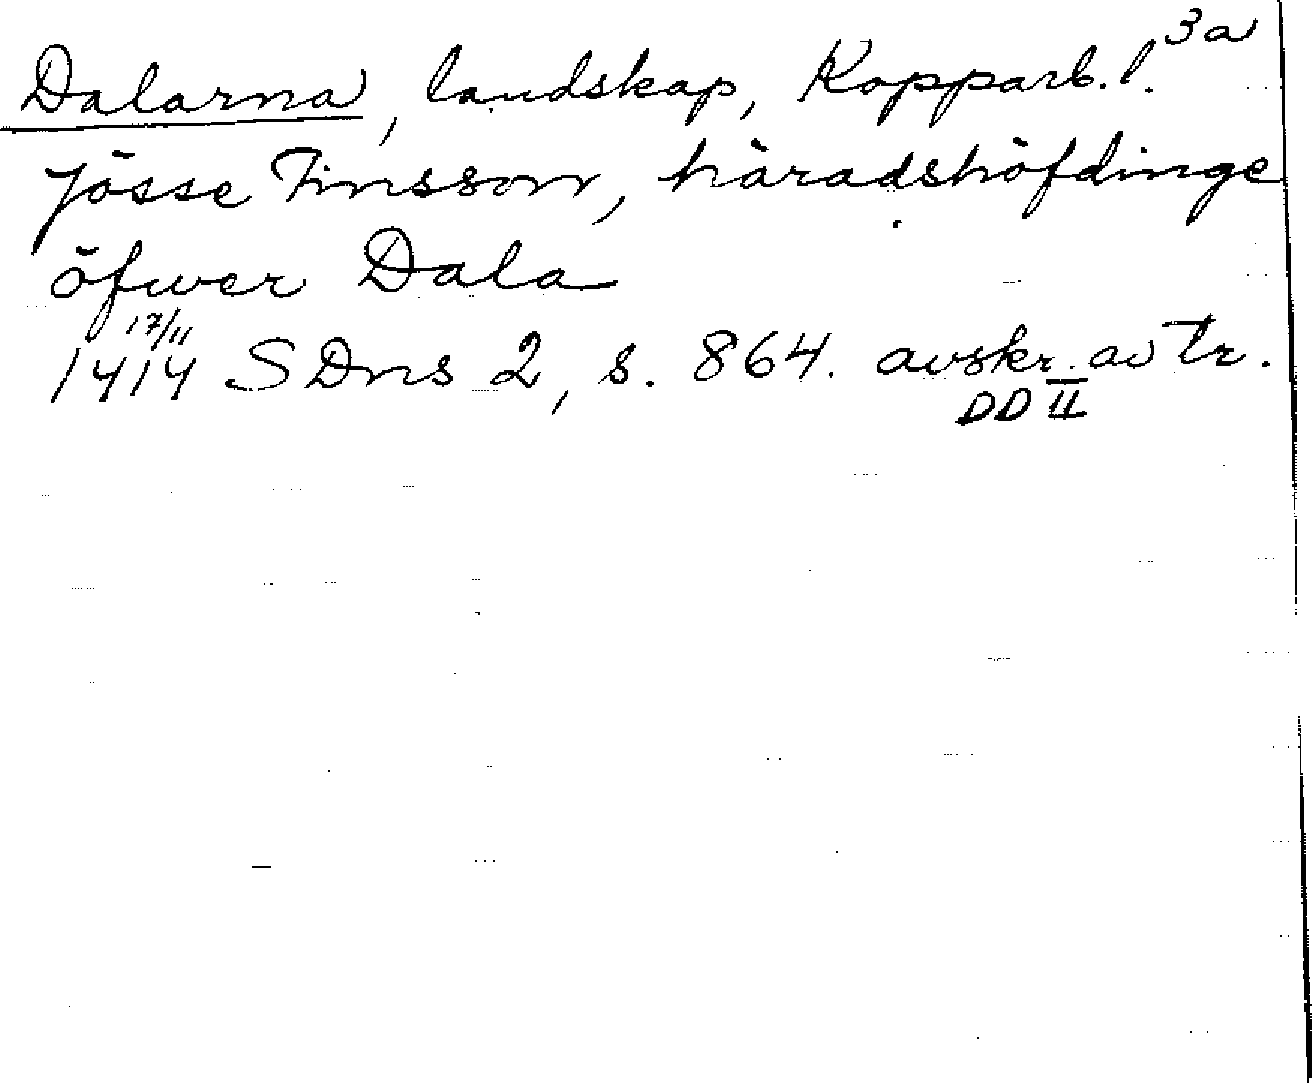 Dalarna, landskap, Kopparb. l. 3a
Jösse Finsson, häradshöfdinge
öfwer Dala
17/11
1414 SDns 2, s. 864. avskr. av tr.
DD II